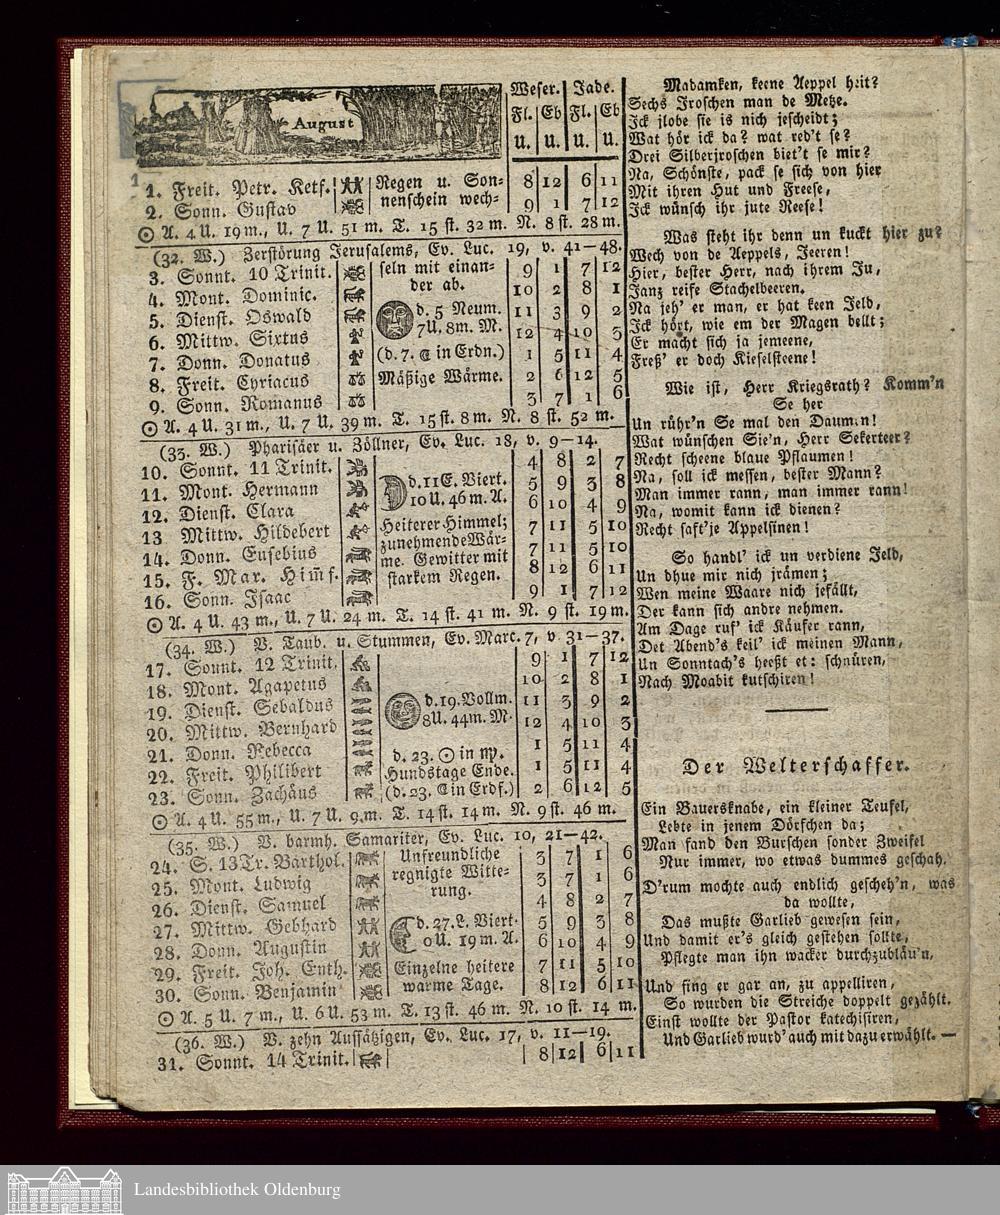 August
Weser. Jade.
Fl. Eb Fl. Eb
U. U. U. U.
1. Freit. Petr. Ketf. Regen u. Son= 8 12 6 11
2. Sonn. Gustav nenschein wech= 9 1 7 12
A. 4 U. 19 m., U. 7 U. 51 m. T. 15 st. 32 m. N. 8 st. 28 m.
(32. W.) Zerstörung Jerusalems, Ev. Luc. 19, v. 41—48.
3. Sonnt. 10 Trinit. seln mit einan= 9 1 7 12
4. Mont. Dominic. der ab. 10 2 8 1
5. Dienst. Oswald d. 5 Neum. 11 3 9 2
6. Mittw. Sixtus 7 U. 8 m. M. 12 4 10 3
7. Donn. Donatus (d. 7. ☾ in Erdn.) 1 5 11 4
8. Freit. Cyriacus Mäßige Wärme. 2 6 12 5
9. Sonn. Romanus 3 7 1 6
A. 4 U. 31 m., U. 7 U. 39 m. T. 15 st. 8 m. N. 8 st. 52 m.
(33. W.) Pharisäer u. Zöllner, Ev. Luc. 18, v. 9—14.
10. Sonnt. 11 Trinit. 4 8 2 7
11. Mont. Hermann d. 11 E. Viert. 5 9 3 8
12. Dienst. Clara 10 U. 46 m. A. 6 10 4 9
13 Mittw. Hildebert Heiterer Himmel; 7 11 5 10
14. Donn. Eusebius zunehmende Wär= 7 11 5 10
15. F. Mar. Him̄f. me. Gewitter mit 8 12 6 11
16. Sonn. Isaac starkem Regen. 9 1 7 12
A. 4 U. 43 m., U. 7 U. 24 m. T. 14 st. 41 m. N. 9 st. 19 m.
(34. W.) V. Taub. u. Stummen, Ev. Marc. 7, v. 31—37.
17. Sonnt. 12 Trinit. 9 1 7 12
18. Mont. Agapetus 10 2 8 1
19. Dienst. Sebaldus d. 19. Vollm. 11 3 9 2
20. Mittw. Bernhard 8 U. 44 m. M. 12 4 10 3
21. Donn. Rebecca d. 23. ☉ in ♍. 1 5 11 4
22. Freit. Philibert Hundstage Ende. 1 5 11 4
23. Sonn. Zachäus (d. 23. ☾ in Erdf.) 2 6 12 5
A. 4 U. 55 m., U. 7 U. 9 m. T. 14 st. 14 m. N. 9 st. 46 m.
(35. W.) V. barmh. Samariter, Ev. Luc. 10, 21—42.
24. S. 13 Tr. Barthol. Unfreundliche 3 7 1 6
25. Mont. Ludwig regnigte Witte= 3 7 1 6
26. Dienst. Samuel rung. 4 8 2 7
27. Mittw. Gebhard d. 27. L. Viert. 5 9 3 8
28. Donn. Augustin 0 U. 19 m. A. 6 10 4 9
29. Freit. Joh. Enth. Einzelne heitere 7 11 5 10
30. Sonn. Benjamin warme Tage. 8 12 6 11
A. 5 U. 7 m., U. 6 U. 53 m. T. 13 st. 46 m. N. 10 st. 14 m.
(36. W.) V. zehn Aussätzigen, Ev. Luc. 17, v. 11—19.
31. Sonnt. 14 Trinit. 8 12 6 11
Madamken, keene Aeppel heit?
Sechs Jroschen man de Metze.
Ick jlobe sie is nich jescheidt;
Wat hör ick da? wat red't se?
Drei Silberjroschen biet't se mir?
Na, Schönste, pack se sich von hier
Mit ihren Hut und Freese,
Ick wünsch ihr jute Reese!
Was steht ihr denn un kuckt hier zu?
Wech von de Aeppels, Jeeren!
Hier, bester Herr, nach ihrem Ju,
Janz reife Stachelbeeren.
Na jeh' er man, er hat keen Jeld,
Ick hört, wie em der Magen bellt;
Er macht sich ja jemeene,
Freß' er doch Kieselsteene!
Wie ist, Herr Kriegsrath? Komm'n
Se her
Un rühr'n Se mal den Daumen!
Wat wünschen Sie'n, Herr Sekerteer?
Recht scheene blaue Pflaumen!
Na, soll ick messen, bester Mann?
Man immer rann, man immer rann!
Na, womit kann ick dienen?
Recht saft'je Appelsinen!
So handl' ick un verdiene Jeld,
Un dhue mir nich jrämen;
Wen meine Waare nich jefällt,
Der kann sich andre nehmen.
Am Dage ruf' ick Käufer rann,
Det Abend's keil' ick meinen Mann,
Un Sonntach's heeßt et: schnüren,
Nach Moabit kutschiren!
Der Welterschaffer.
Ein Bauersknabe, ein kleiner Teufel,
Lebte in jenem Dörfchen da;
Man fand den Burschen sonder Zweifel
Nur immer, wo etwas dummes geschah.
D'rum mochte auch endlich gescheh'n, was
da wollte,
Das mußte Garlieb gewesen sein,
Und damit er's gleich gestehen sollte,
Pflegte man ihn wacker durchzubläu'n,
Und fing er gar an, zu appelliren,
So wurden die Streiche doppelt gezählt.
Einst wollte der Pastor katechisiren,
Und Garlieb wurd' auch mit dazu erwählt. —
Landesbibliothek Oldenburg